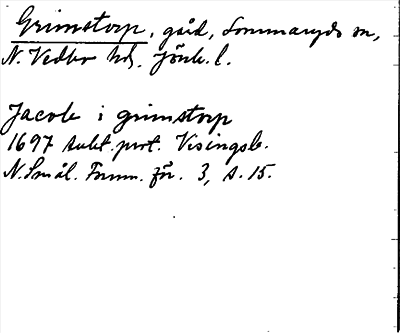 Grimstorp, gård, Lommaryds sn,
N. Vedbo hd. Jönk. l.
Jacob i grimstorp
1697 Subt. prot. Visingsb.
N. Smål. Fornm. för. 3, s. 15.